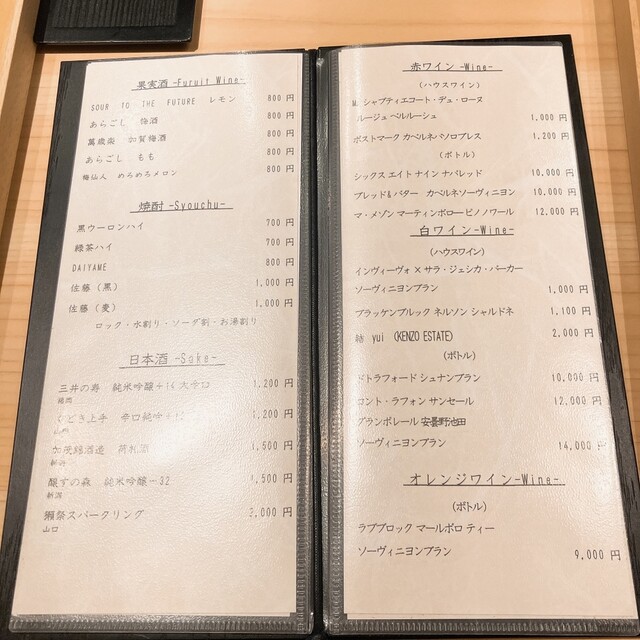 果実酒 -Furuit Wine-
SOUR TO THE FUTURE レモン 800 円
あらごし 梅酒 800 円
萬歳楽 加賀梅酒 800 円
あらごし もも 800 円
梅仙人 めろめろメロン 800 円
焼酎 -Syouchu-
黒ウーロンハイ 700 円
緑茶ハイ 700 円
DAIYAME 800 円
佐藤 (黒) 1,000 円
佐藤 (麦) 1,000 円
ロック・水割り・ソーダ割・お湯割り
日本酒 -Sake-
三井の寿 純米吟醸+14 大辛口 1,200 円
福岡
くどき上手 辛口純吟 1,200 円
加茂錦酒造 荷札酒 1,500 円
新潟
醸す森 純米吟醸 1,500 円
新潟
獺祭スパークリング 3,000 円
山口
赤ワイン -Wine-
(ハウスワイン)
M. シャプティエコート・デュ・ローヌ
ルージュ ベルルーシュ 1,000 円
ポストマーク カベルネパソロブレス 1,200 円
(ボトル)
シックス エイト ナイン ナパレッド 10,000 円
ブレッド&バター カベルネソーヴィニヨン 10,000 円
マ・メゾン マーティンボロー ピノノワール 12,000 円
白ワイン-Wine-
(ハウスワイン)
インヴィーヴォ × サラ・ジェシカ・パーカー
ソーヴィニヨンブラン 1,000 円
ブラッケンブルック ネルソン シャルドネ 1,100 円
結 yui (KENZO ESTATE) 2,000 円
(ボトル)
ドトラフォード シュナンブラン 10,000 円
コント・ラフォン サンセール 12,000 円
グランポレール 安曇野池田
ソーヴィニヨンブラン 14,000 円
オレンジワイン-Wine-
(ボトル)
ラブブロック マールボロ ティー
ソーヴィニヨンブラン 9,000 円